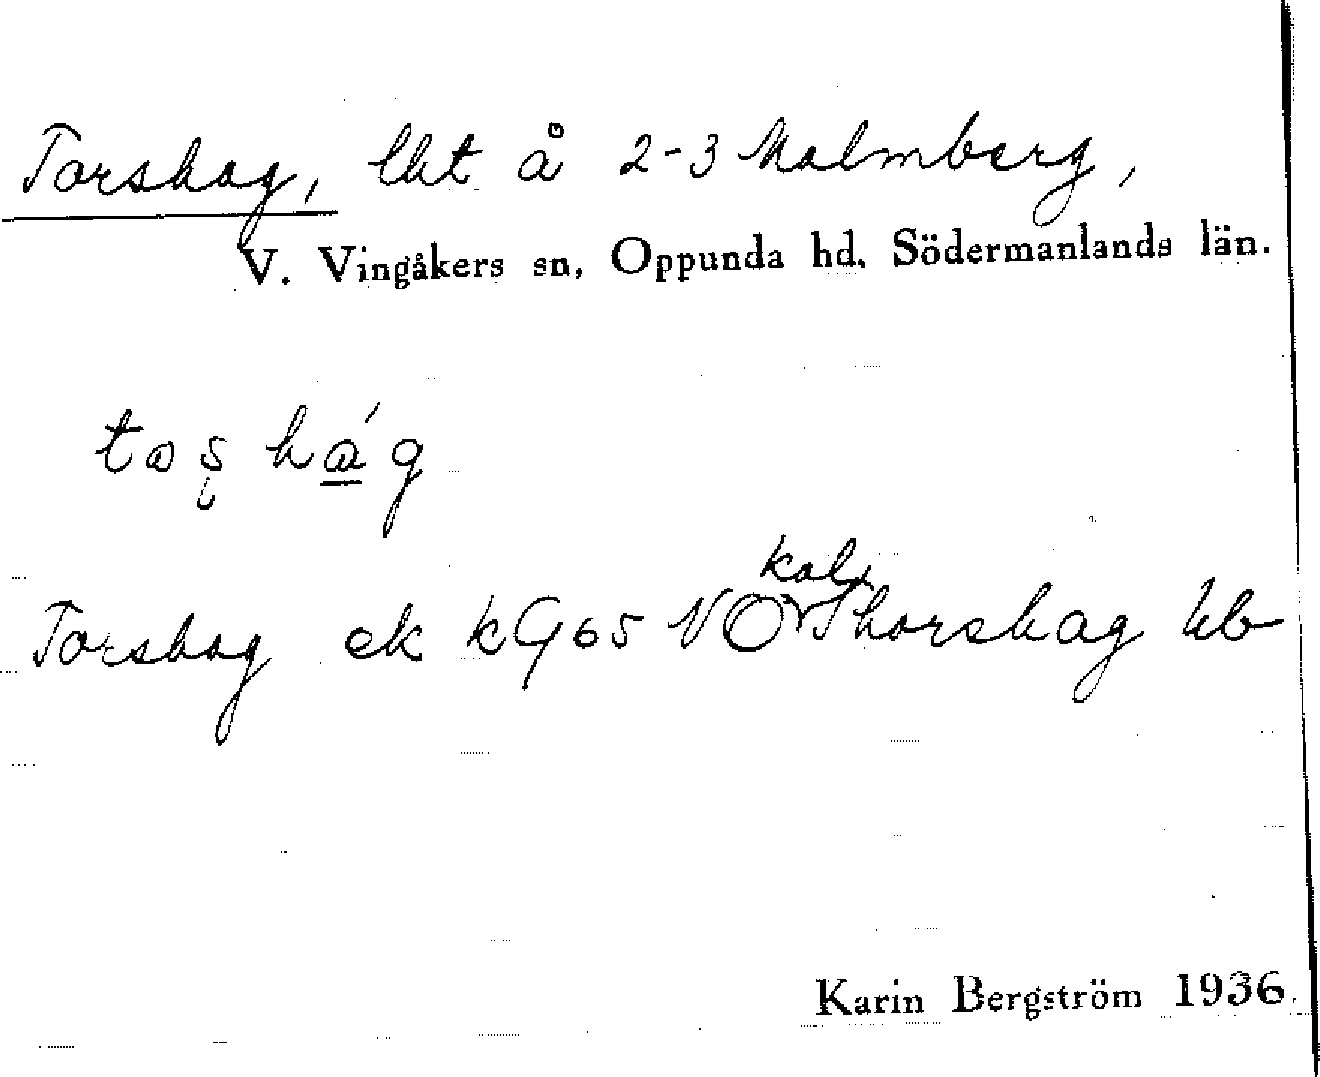 Torshag, lht å 2-3 Malmberg,
V. Vingåkers sn, Oppunda hd, Södermanlands län.
Torshag ek kG65 NO Thorshag hb
Karin Bergström 1936.